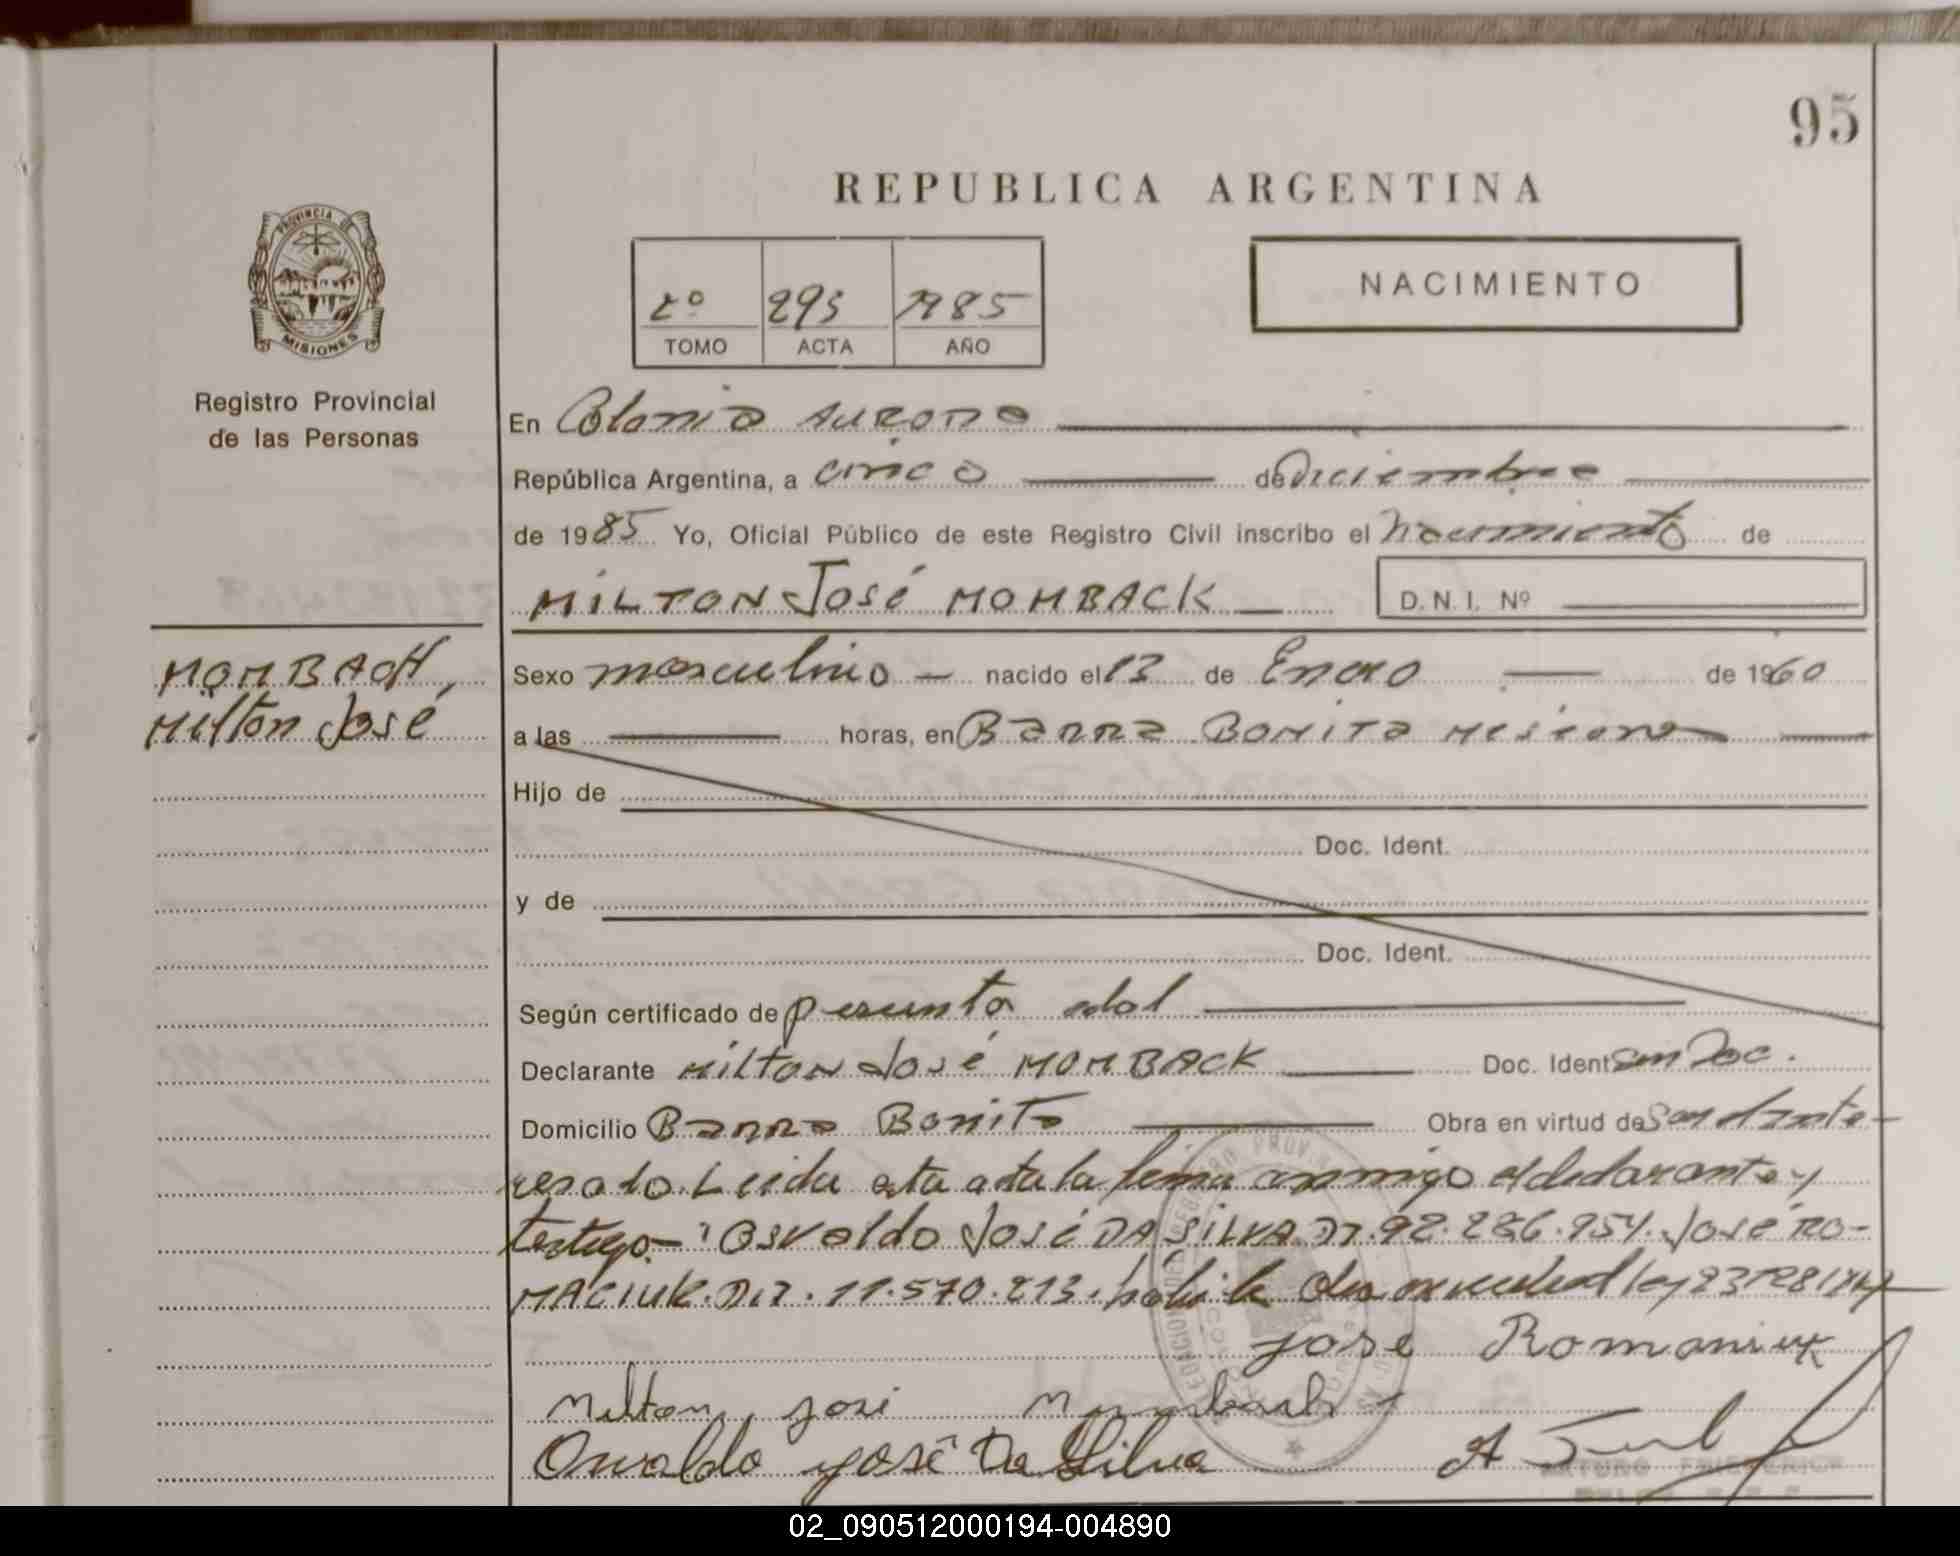 95
REPUBLICA ARGENTINA
PROVINCIA DE
MISIONES
2º 293 1985
TOMO ACTA AÑO
NACIMIENTO
Registro Provincial
de las Personas
En Colonia AURORA
República Argentina, a cinco de Diciembre
de 1985 Yo, Oficial Público de este Registro Civil inscribo el Nacimiento de
MILTON José MOMBACK
D.N.I. Nº
MOMBACH,
Milton José
Sexo masculino nacido el 13 de Enero de 1960
a las horas, en BARRA BONITA Misiones
Hijo de
Doc. Ident.
y de
Doc. Ident.
Según certificado de presunta edad
Declarante Milton José MOMBACK Doc. Ident Sin Doc.
Domicilio Barra Bonita Obra en virtud de
Leida esta acta la firma conmigo el declarante y
testigo- Osvaldo José DA SILVA DI. 92.286.954. José RO-
MACIUK. D.I. 11.570.213.
jose Romaniuk
Milton jose
Osvaldo josé Da Silva
ARTURO FRIEDERICH
02_090512000194-004890